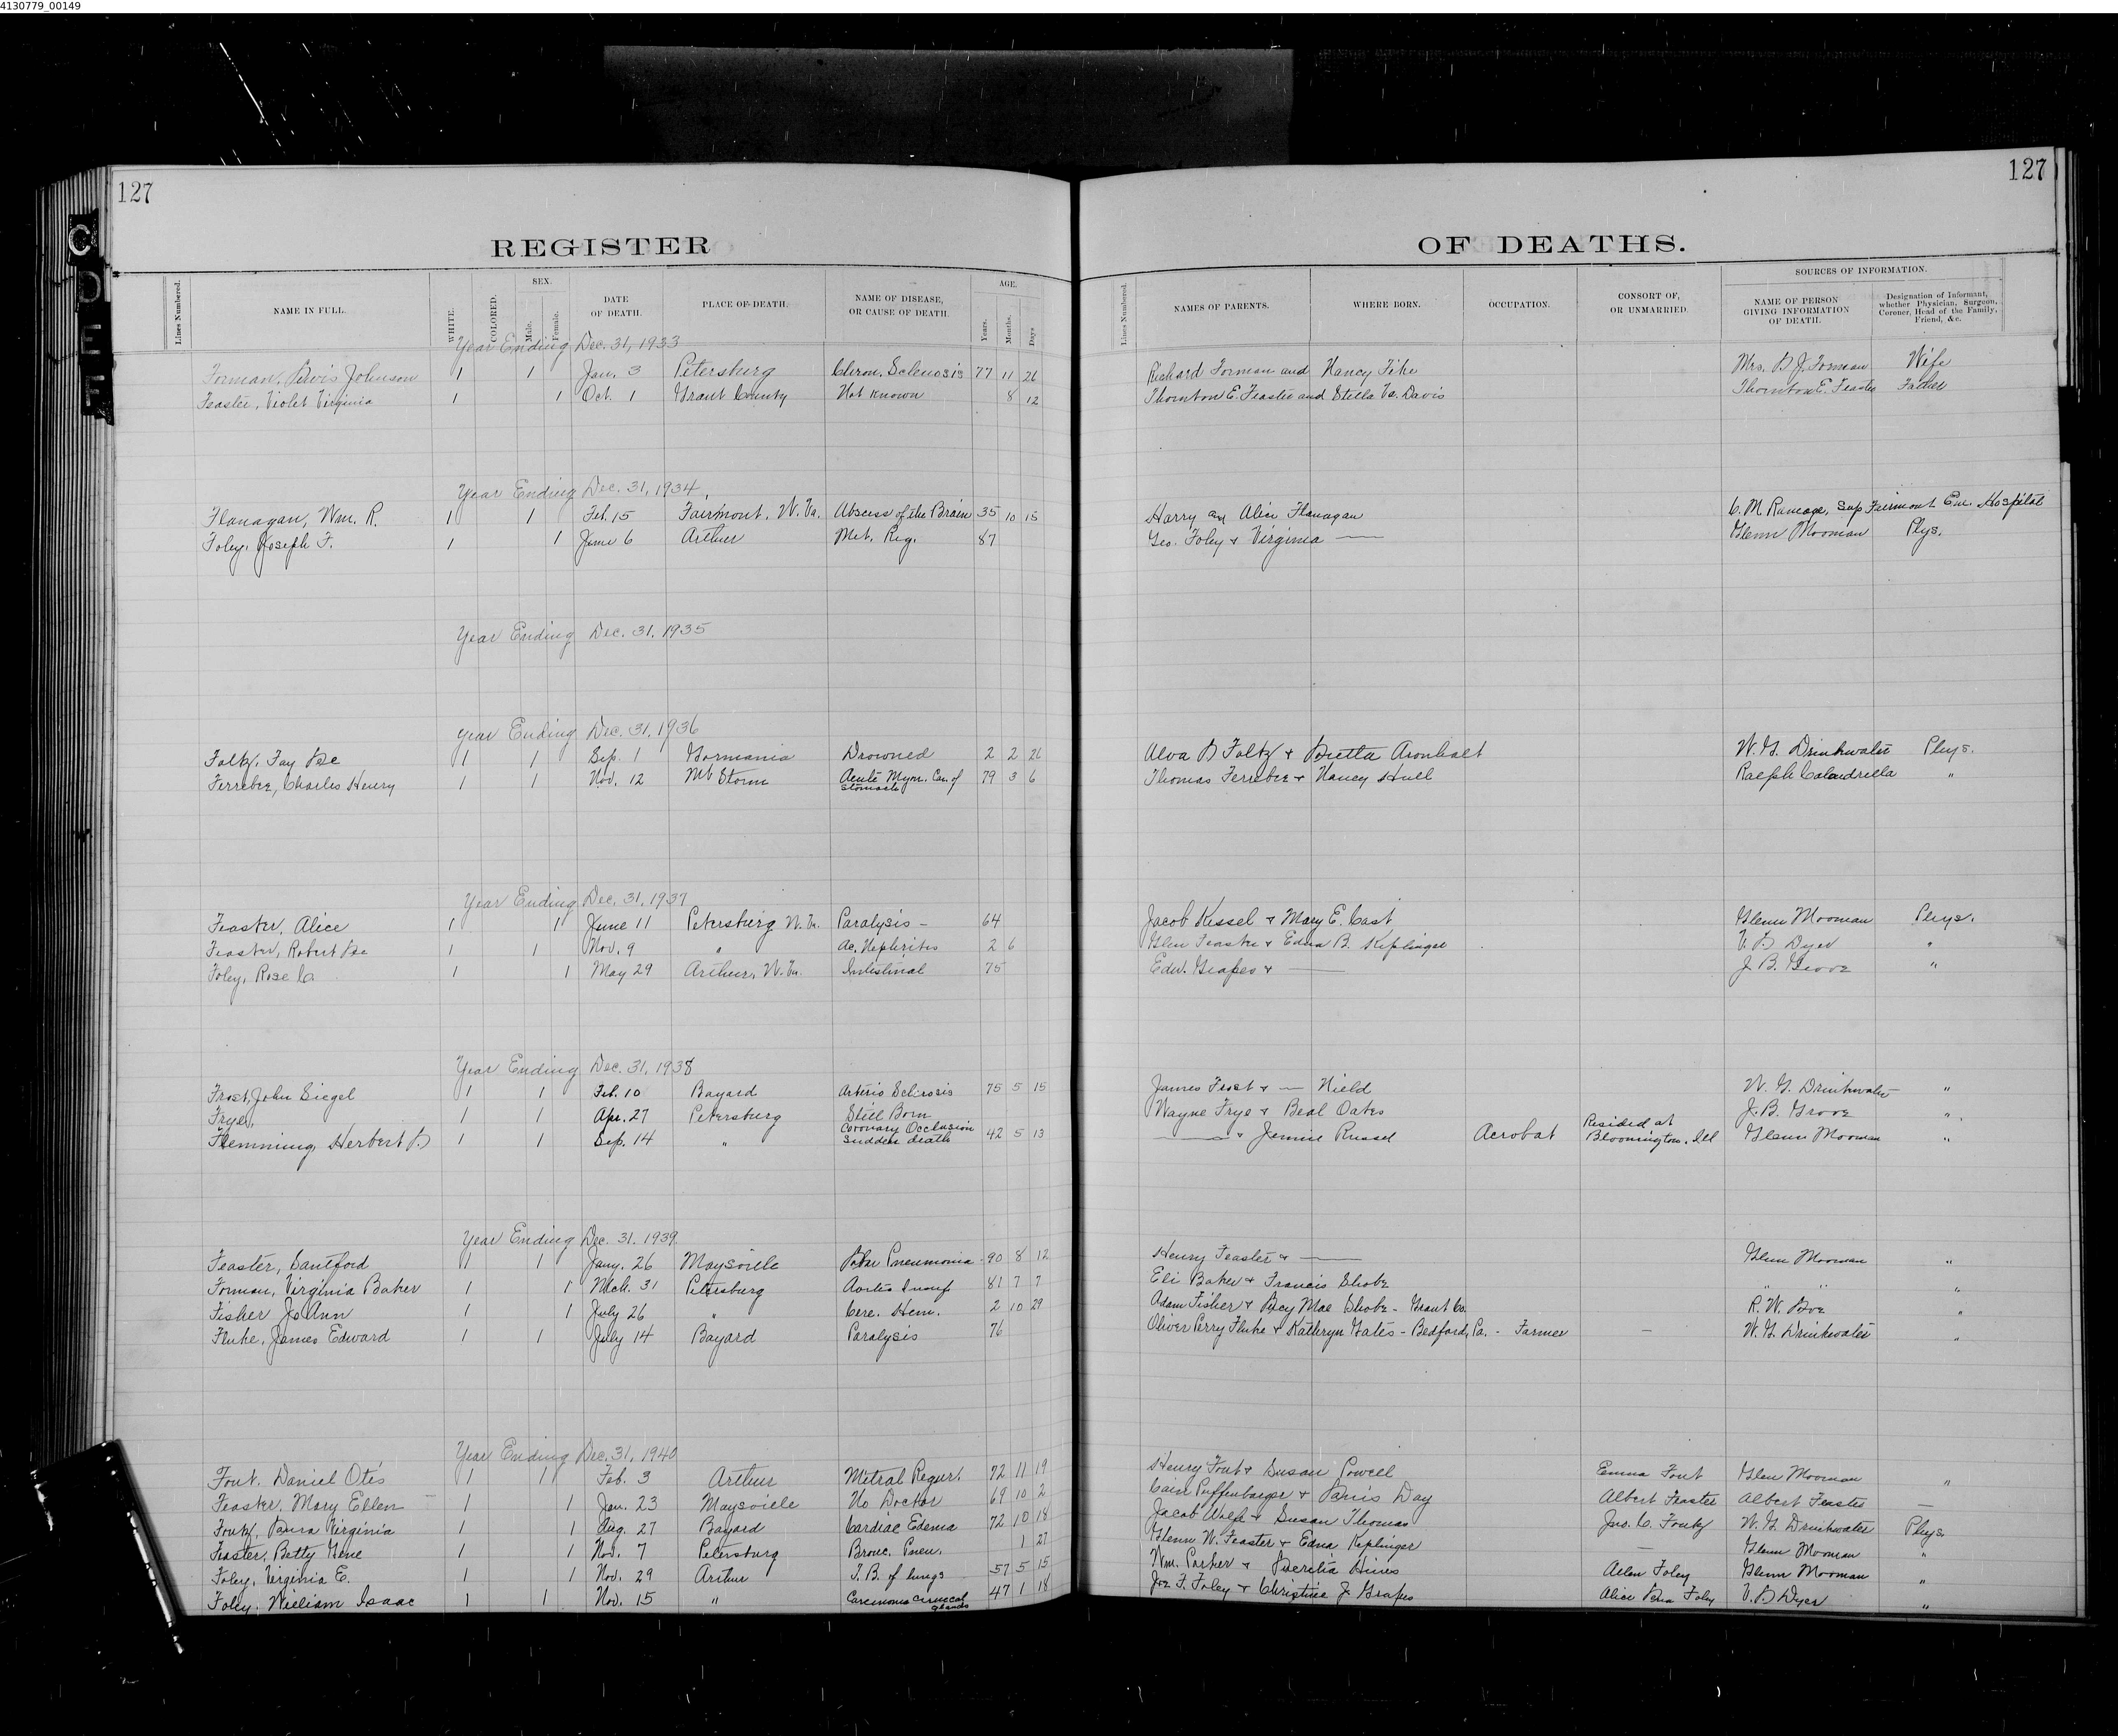 4130779_00149
127
127
C
D
E
F
REGISTER OF DEATHS.
Lines Numbered. NAME IN FULL. WHITE. COLORED. SEX. Male. Female. DATE OF DEATH. PLACE OF DEATH. NAME OF DISEASE, OR CAUSE OF DEATH. AGE. Years. Months. Days Lines Numbered. NAMES OF PARENTS. WHERE BORN. OCCUPATION. CONSORT OF, OR UNMARRIED. SOURCES OF INFORMATION. NAME OF PERSON GIVING INFORMATION OF DEATH. Designation of Informant, whether Physician, Surgeon, Coroner, Head of the Family, Friend, &c.
Year Ending Dec. 31, 1933
Forman, Johnson 1 1 Jan. 3 Petersburg 77 11 26 Richard Forman and Nancy Fike Mrs. D J. Forman Wife
Feaster, Violet Virginia 1 1 Oct. 1 Grant County Not known 8 12 Thornton E. Feaster and Stella Va. Davis Thornton E. Feaster Father
Year Ending Dec. 31, 1934
Flanagan, Wm. R. 1 1 Feb. 15 Fairmont, W. Va. Abscess of the Brain 35 10 15 Harry and Alice Flanagan C. M. Ramage, Sup Fairmont Em. Hospital
Foley, Joseph F. 1 1 June 6 Arthur Met. Reg. 87 Geo. Foley & Virginia — Glenn Mooman Phys.
Year Ending Dec. 31, 1935
Year Ending Dec. 31, 1936
Foltz, Fay Lee 1 1 Sep. 1 Gormania Drowned 2 2 26 Alva D Foltz & Aronhalt W. G. Drinkwater Phys.
Ferrebee, Charles Henry 1 1 Nov. 12 Mt Storm Acute Myn. Can. of stomach 79 3 6 Thomas Ferrebee & Nancy Hull Ralph Calandrella "
Year Ending Dec. 31, 1937
Feaster, Alice 1 1 June 11 Petersburg W. Va. Paralysis – 64 Jacob Kessel & Mary E. Cast Glenn Mooman Phys.
Feaster, Robert Lee 1 1 Nov. 9 " Ac. Nephrites 2 6 Glen Feaster & Edna B. Keplinger V. D Dyer "
Foley, Rose C. 1 1 May 29 Arthur, W. Va. Intestinal 75 Edw. Grapes & — J. B. Grove "
Year Ending Dec. 31, 1938
Frost, John Siegel 1 1 Feb. 10 Bayard Arterio Sclerosis 75 5 15 James Frost & — Nield W. G. Drinkwater "
Frye, 1 1 Apr. 27 Petersburg Still Born Wayne Frye & Beal Oates J. B. Grove "
Flemming, Herbert D 1 1 Sep. 14 " Coronary Occlusion sudden death 42 5 13 — & Jennie Russel Acrobat Resided at Bloomington, Ill Glenn Mooman "
Year Ending Dec. 31, 1939
Feaster, Santford 1 1 Jany. 26 Maysville Pneumonia 90 8 12 Henry Feaster & — Glenn Mooman "
Forman, Virginia Baker 1 1 Mch. 31 Petersburg Aortic Insuf 81 7 7 Eli Baker & Francis Shobe " " "
Fisher Jo Ann 1 1 July 26 " Cere. Hem. 2 10 29 Adam Fisher & Mae Shobe - Grant Co. R. W. "
Fluke, James Edward 1 1 July 14 Bayard Paralysis 76 Oliver Perry Fluke & Kathryn Gates - Bedford, Pa. - Farmer — W. G. Drinkwater "
Year Ending Dec. 31, 1940
Fout, Daniel Otis 1 1 Feb. 3 Arthur Mitral Regur. 72 11 19 Henry Fout & Susan Powell Emma Fout Glen Mooman "
Feaster, Mary Ellen 1 1 Jan. 23 Maysville No Doctor 69 10 2 Puffenbarger & Day Albert Feaster Albert Feaster —
Foutz, Laura Virginia 1 1 Aug. 27 Bayard Cardiac Edema 72 10 18 Jacob Wolfe & Susan Thomas Jno. C. Foutz W. G. Drinkwater Phys.
Feaster, Betty Gene 1 1 Nov. 7 Petersburg Bronc. Pneu. 1 27 Glenn W. Feaster & Edna Keplinger — Glenn Mooman "
Foley, Virginia E. 1 1 Nov. 29 Arthur T. B. of lungs 57 5 15 Wm. Parker & Hines Allen Foley Glenn Mooman "
Foley, William Isaac 1 1 Nov. 15 " Carcinoma Cervical glands 47 1 18 Joe F. Foley & Christine J. Grapes Alice Foley V. D Dyer "